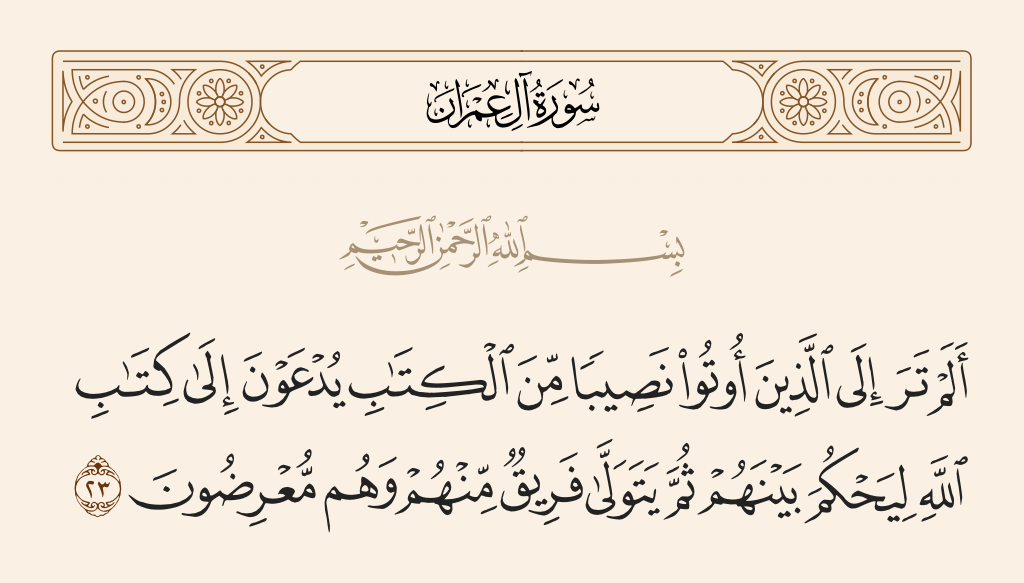 سُورَةُ آلِ عِمْرَانَ
بِسْمِ ٱللَّهِ ٱلرَّحْمَٰنِ ٱلرَّحِيمِ
أَلَمْ تَرَ إِلَى ٱلَّذِينَ أُوتُوا۟ نَصِيبًا مِّنَ ٱلْكِتَـٰبِ يُدْعَوْنَ إِلَىٰ كِتَـٰبِ
ٱللَّهِ لِيَحْكُمَ بَيْنَهُمْ ثُمَّ يَتَوَلَّىٰ فَرِيقٌ مِّنْهُمْ وَهُم مُّعْرِضُونَ ٢٣